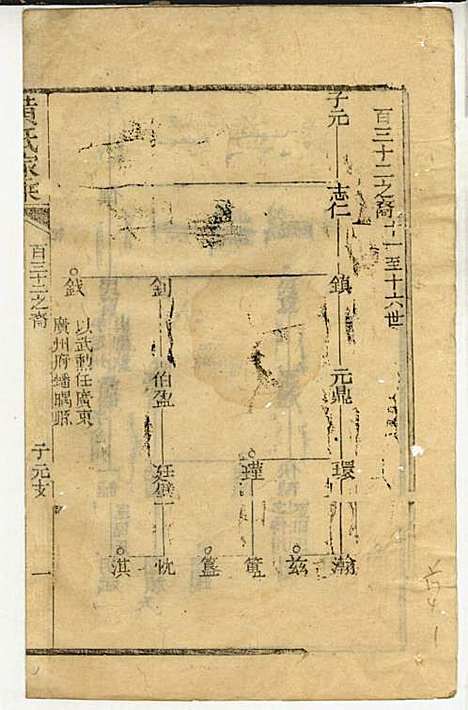 百三十二之裔十一至十六世
子元
志仁
鎮
元鼎
環
瀚
玆
瑾
篔
簋
釗
伯盈
廷璧
忱
淇
鉞
以武勳任廣東
廣州府番禺縣
黃氏家乘
百三十二之裔
子元支
一